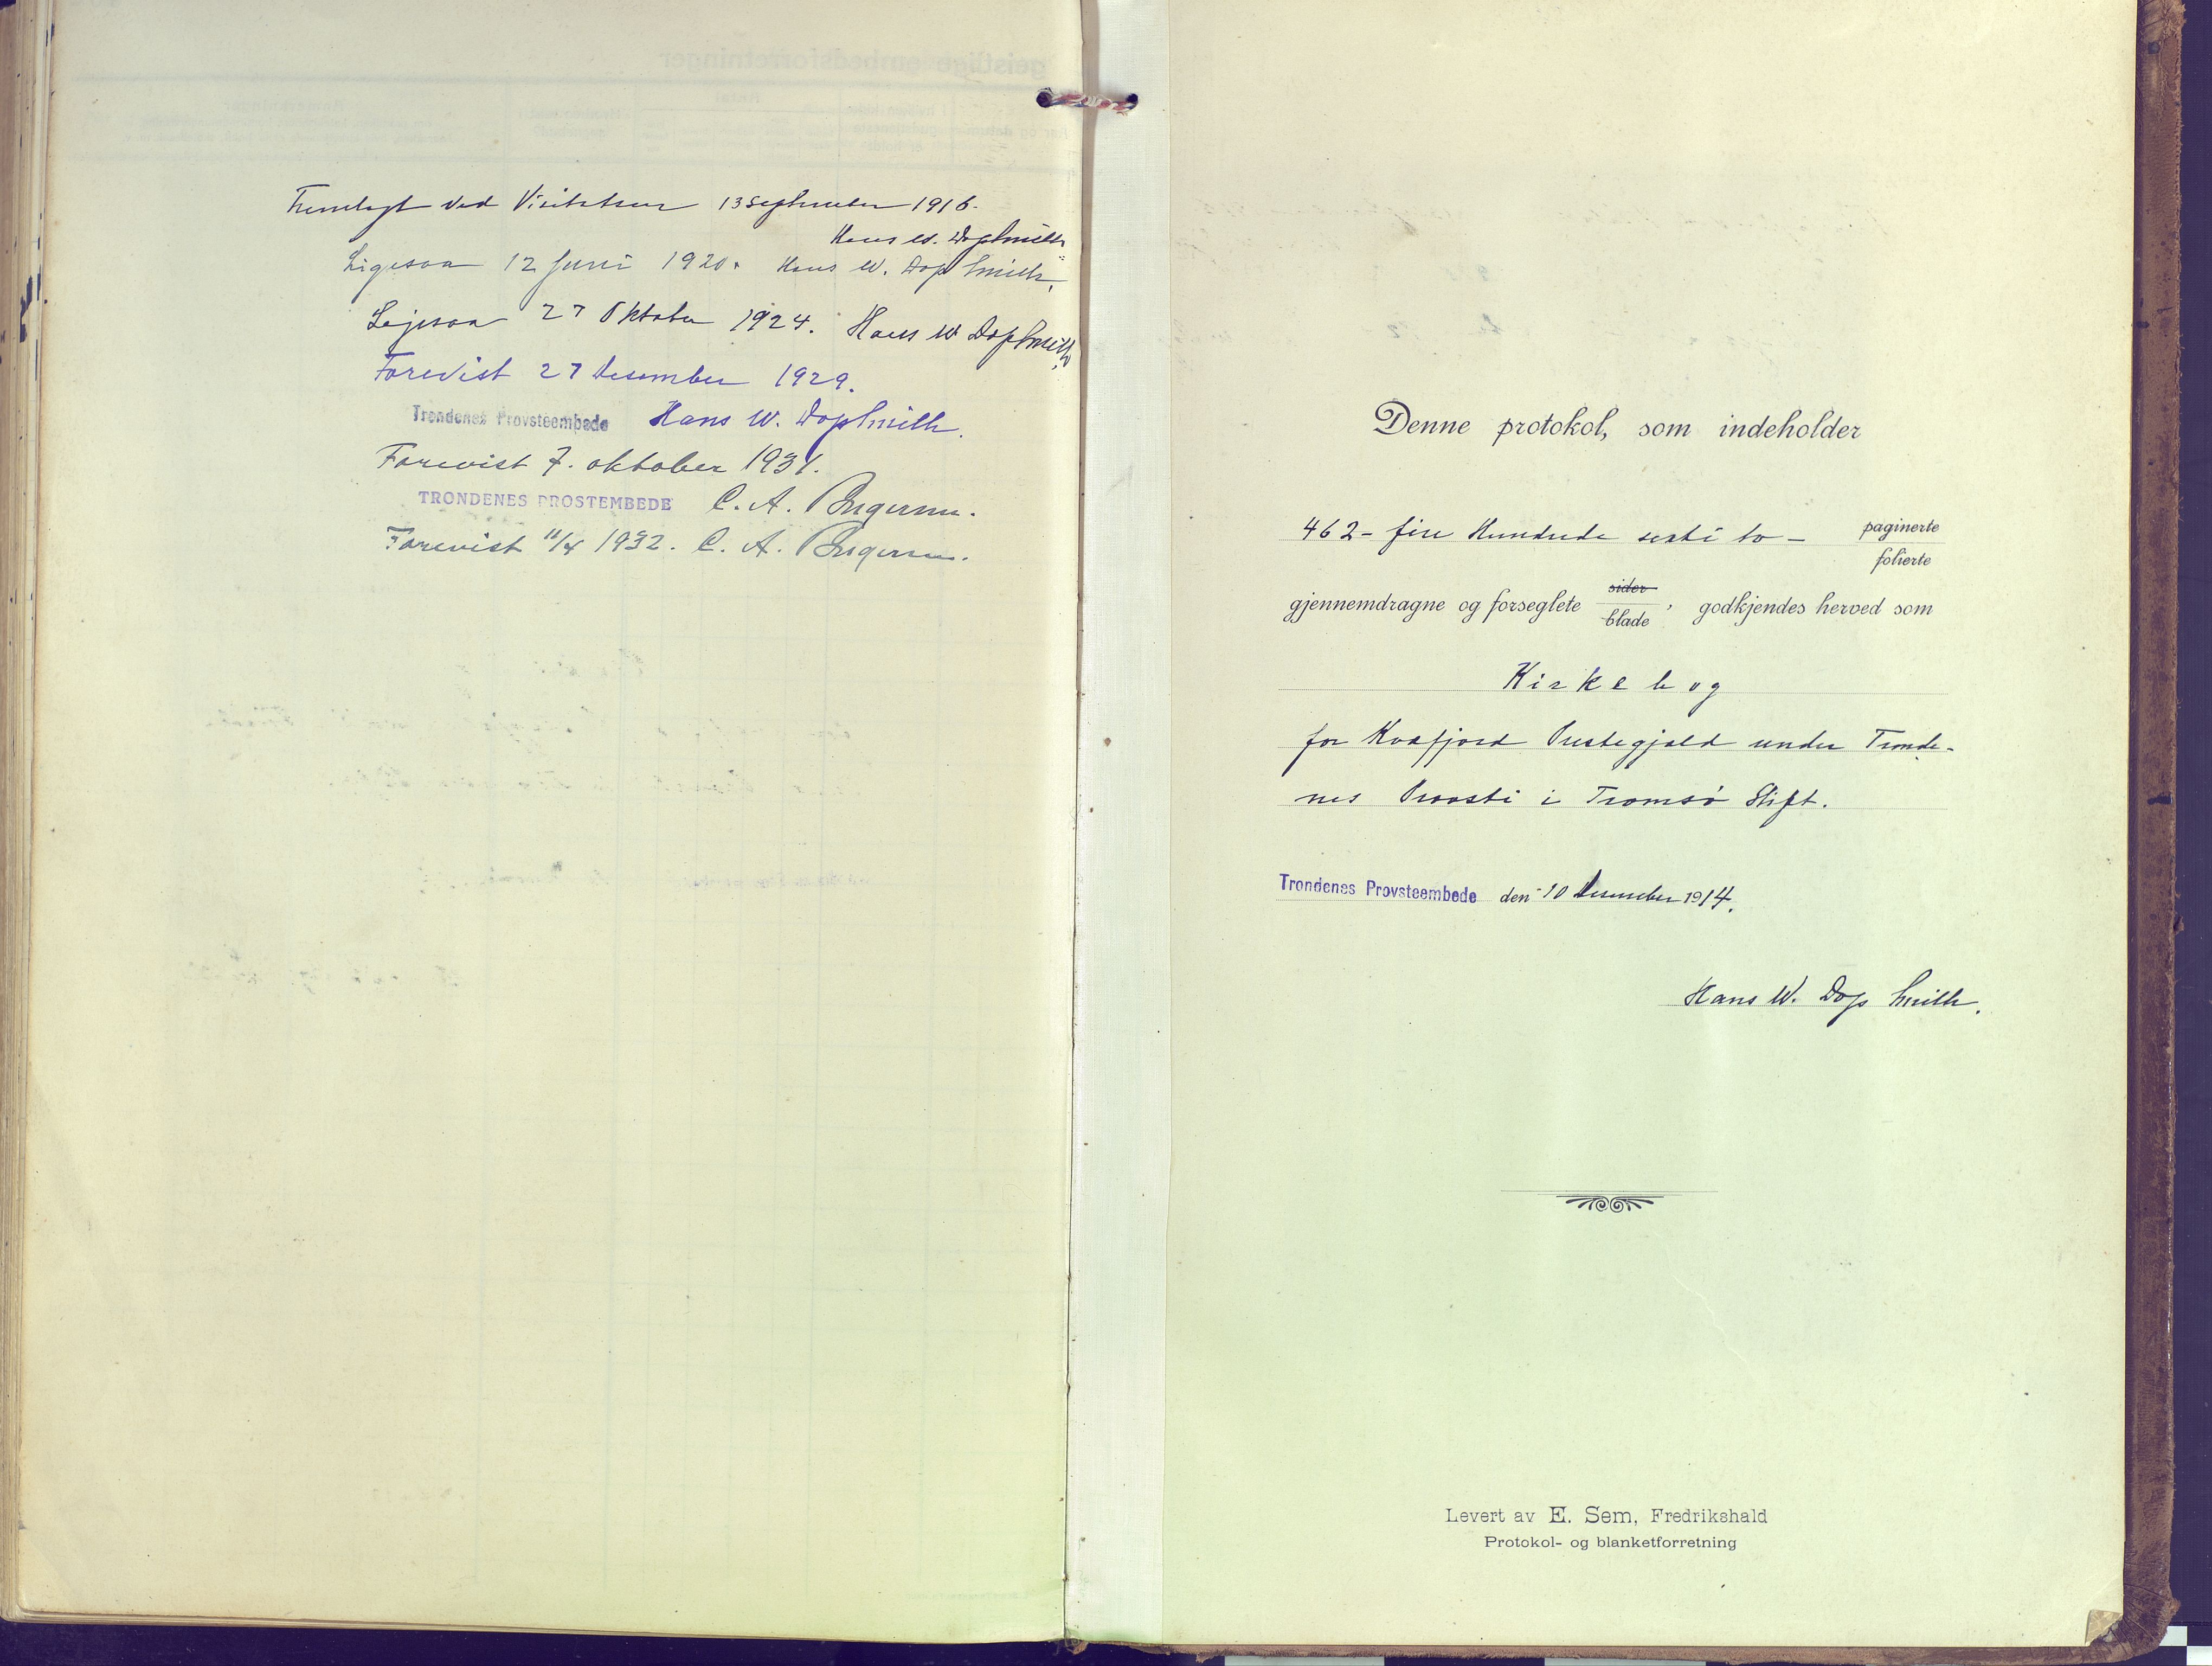 Fremlagt ved Visitatsen 13 September 1916.
Hans W. Dop Smith
Ligesaa 12 Juni 1920. Hans W. Dop Smith,
Ligesaa 27 Oktober 1924. Hans W Dop Smith,
Forevist 27 Desember 1929.
Trondenes Provsteembede Hans W. Dop Smith.
Forevist 7. oktober 1931.
TRONDENES PROSTEMBEDE C. A.
Forevist 11/4 1932. C. A.
Denne protokol, som indeholder
462 - fire Hundrede seksti to - paginerte
folierte
gjennemdragne og forseglete sider
blade, godkjendes herved som
Kirkebog
for Kvæfjord Prestegjæld under Tronde-
nes Provsti i Tromsø Stift.
Trondenes Provsteembede den 10 Desember 1914.
Hans W. Dop Smith.
Levert av E. Sem, Fredrikshald
Protokol- og blanketforretning